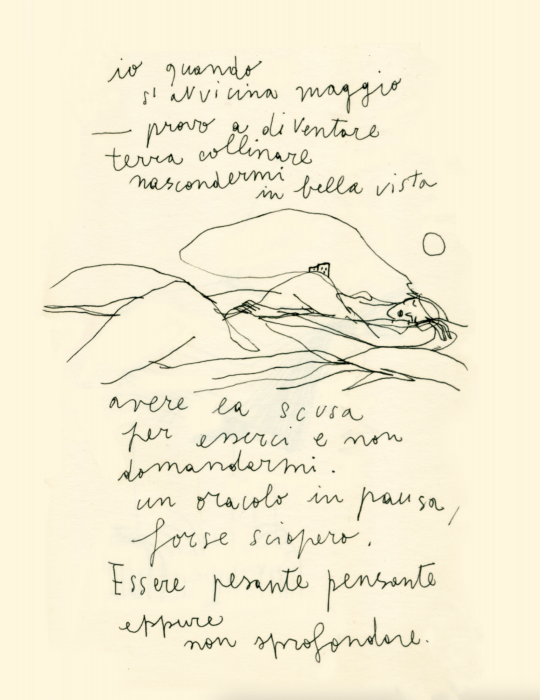 io quando
si avvicina maggio
— provo a diventare
terra collinare
nascondermi
in bella vista
avere la scusa
per esserci e non
domandarmi.
un oracolo in pausa,
forse sciopero.
Essere pesante pensante
eppure
non sprofondare.